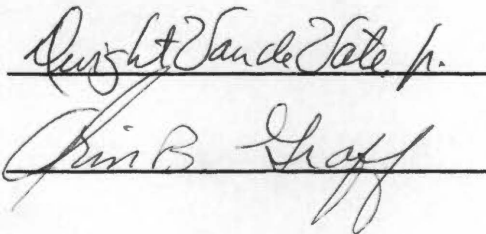 Dwight Van de Vate, Jr.
B. Graff